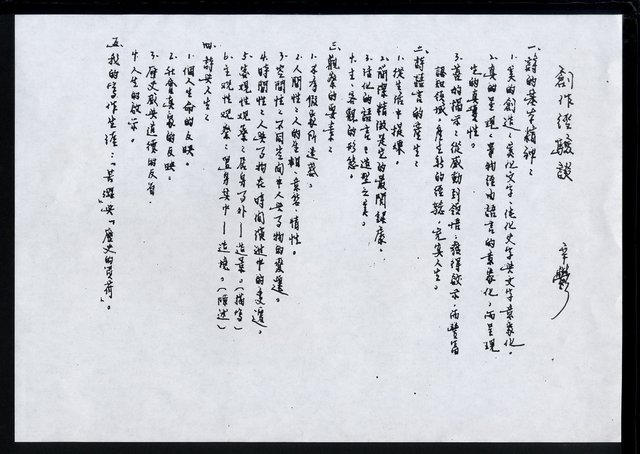 創作經驗談
辛鬱
一、詩的基本精神：
1.美的創造：美化文字、淨化文字與文字意象化。
2.真的呈現：事物經由語言的意象化，而呈現
它的真實性。
3.善的揭示：從感動到領悟，獲得啟示，而豐富
認知領域，產生新的經驗，充實人生。
二、詩語言的產生：
1.從生活中提煉。
2.簡潔精微是它的最關緊處。
3.活化的語言：造型之美。
4.主、客觀的形態。
三、觀察的要素：
1.不為假象所迷惑。
2.人間性：人的生相、意慾、情性。
3.空間性：不同空間中人與事物的變遷。
4.時間性：人與事物在時間演進中的變遷。
5.客觀性觀察：居身事外——造景。（描寫）
6.主觀性觀察：置身其中——造境。（陳述）
四、詩與人生：
1.個人生命的反映。
2.社會真象的反映。
3.歷史感與道德的反省。
4.人生的啟示。
五、我的寫作生涯：「苦澀」與「歷史的負荷」。